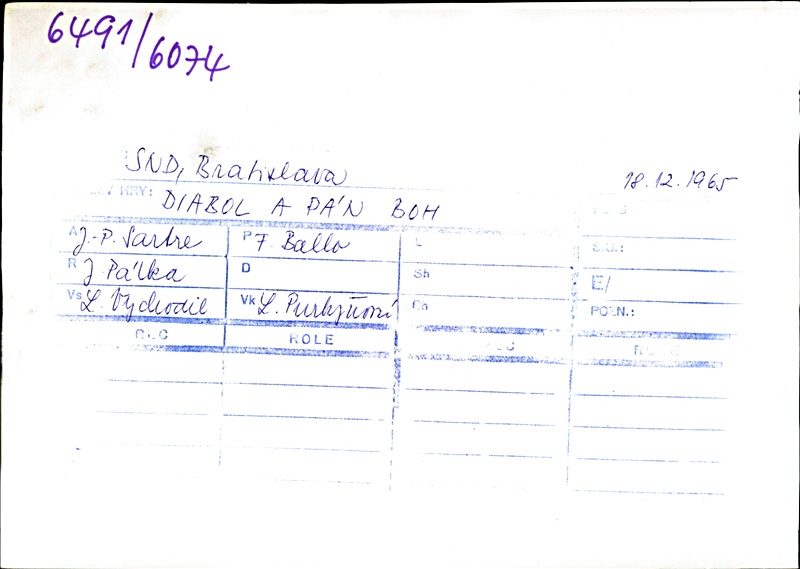 6491/6074
SND, Bratislava 18.12.1965
HRY: DIABOL A PÁN BOH
A J.-P. Sartre P F. Ballo L S.U.:
R J. Pálka D Sh E/
Vs L. Vychodil Vk L. Purkyňová Ch POZN.:
ROLE